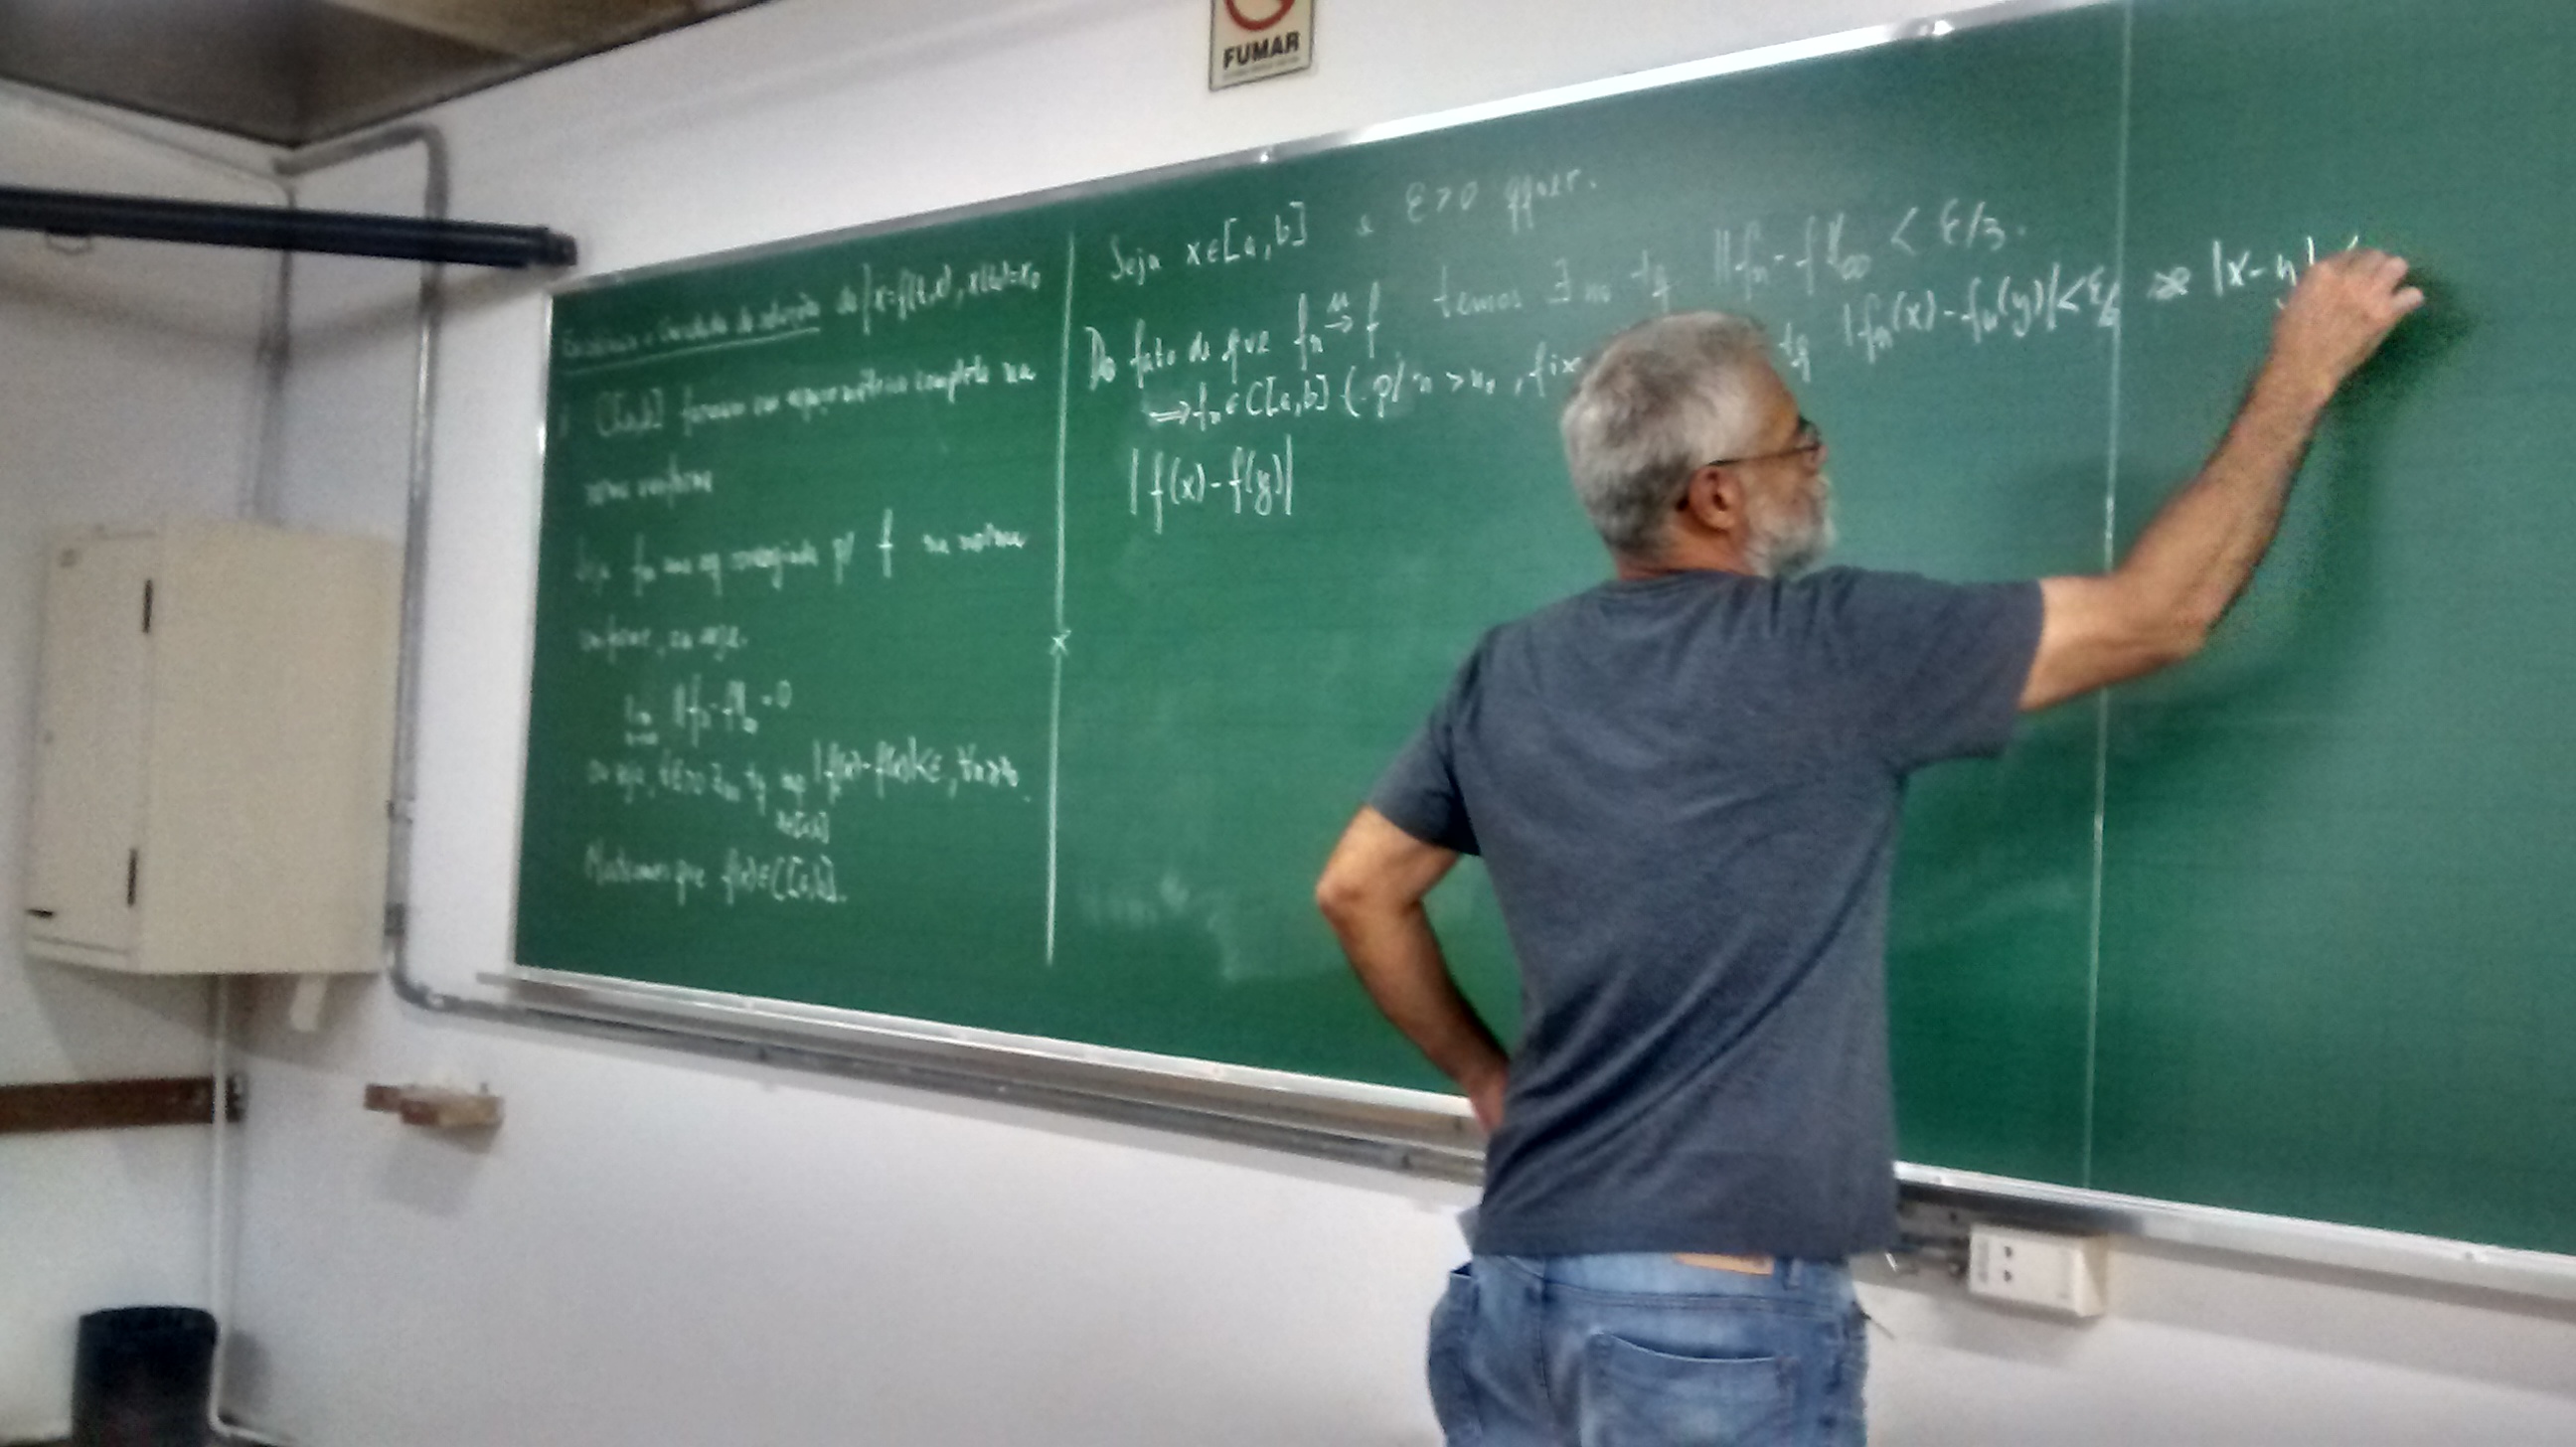 FUMAR
Existência e Unicidade de solução de x=f(t,x), x(t₀)=x₀
C[a,b] formam um espaço métrico completo na
norma uniforme
Seja fn uma seq convergindo p/ f na norma
uniforme, ou seja.
lim ||fn-f||∞=0
ou seja, ∀ε>0 ∃n₀ tq sup |fn(x)-f(x)|<ε, ∀n>n₀
x∈[a,b]
Mostremos que f(x)∈C[a,b].
Seja x∈[a,b] e ε>0 qquer.
Do fato de que fn →ᵘ f temos ∃n₀ tq ||fn-f||∞ < ε/3.
⇒fn∈C[a,b] (p/ n>n₀, fix tq |fn(x)-fn(y)|<ε/3 se |x-y| <
|f(x)-f(y)|